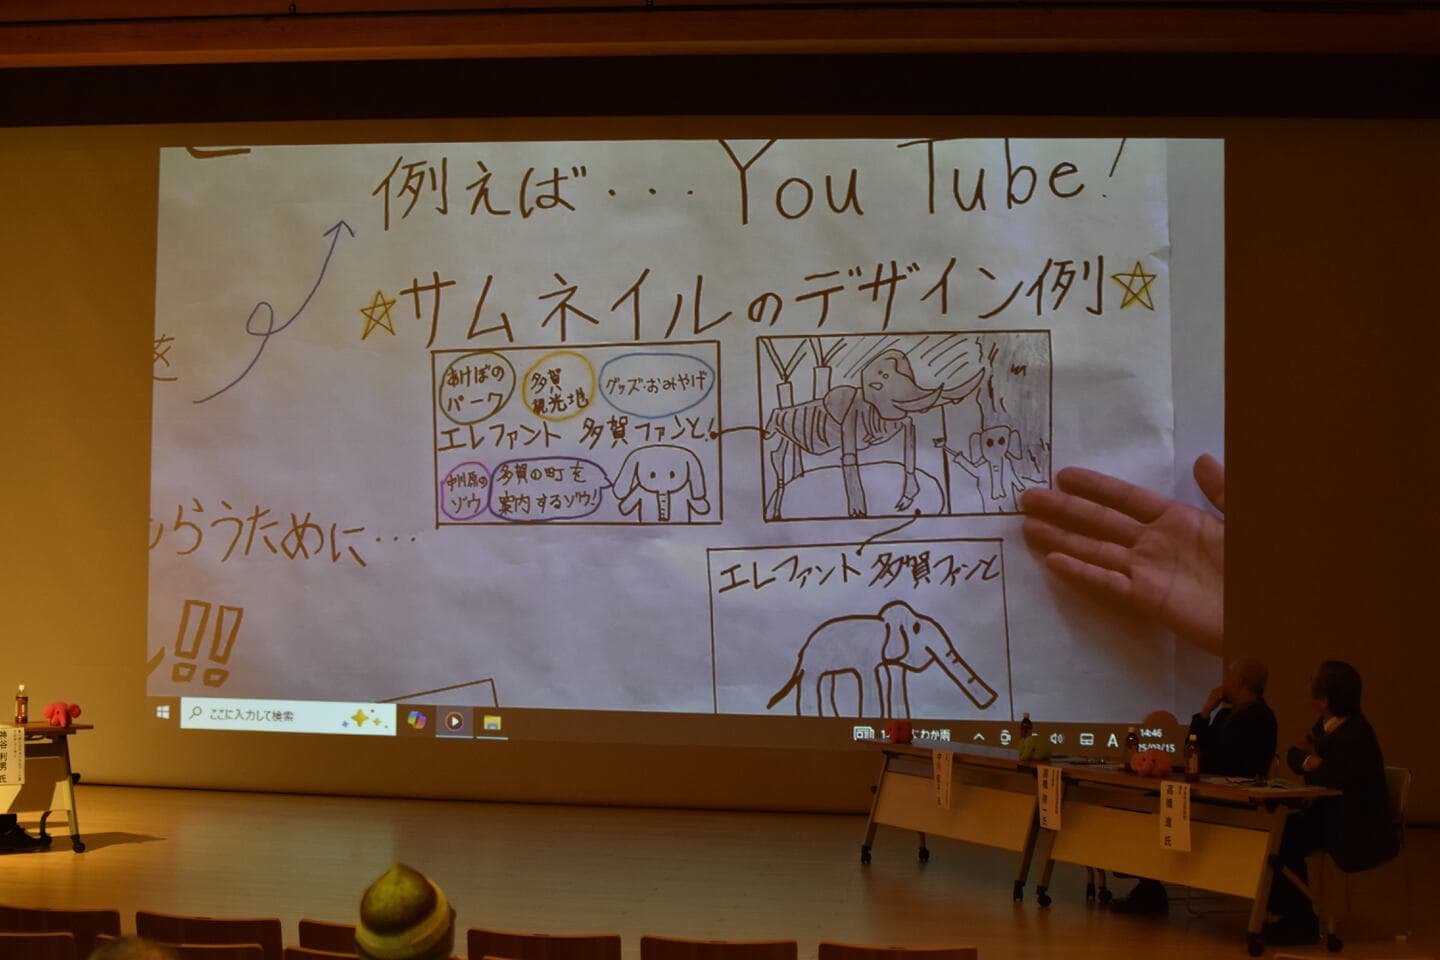 例えば・・・You Tube!
☆サムネイルのデザイン例☆
あけぼの
パーク
多賀
観光地
グッズ・おみやげ
エレファント 多賀ファンと!
中川原の
ゾウ
多賀の町を
案内するゾウ!
エレファント 多賀ファンと
もらうために・・・
!!
ここに入力して検索
にわか雨
A
14:46
25/03/15
神谷 利男 氏
高橋 啓一 氏
高橋 進 氏